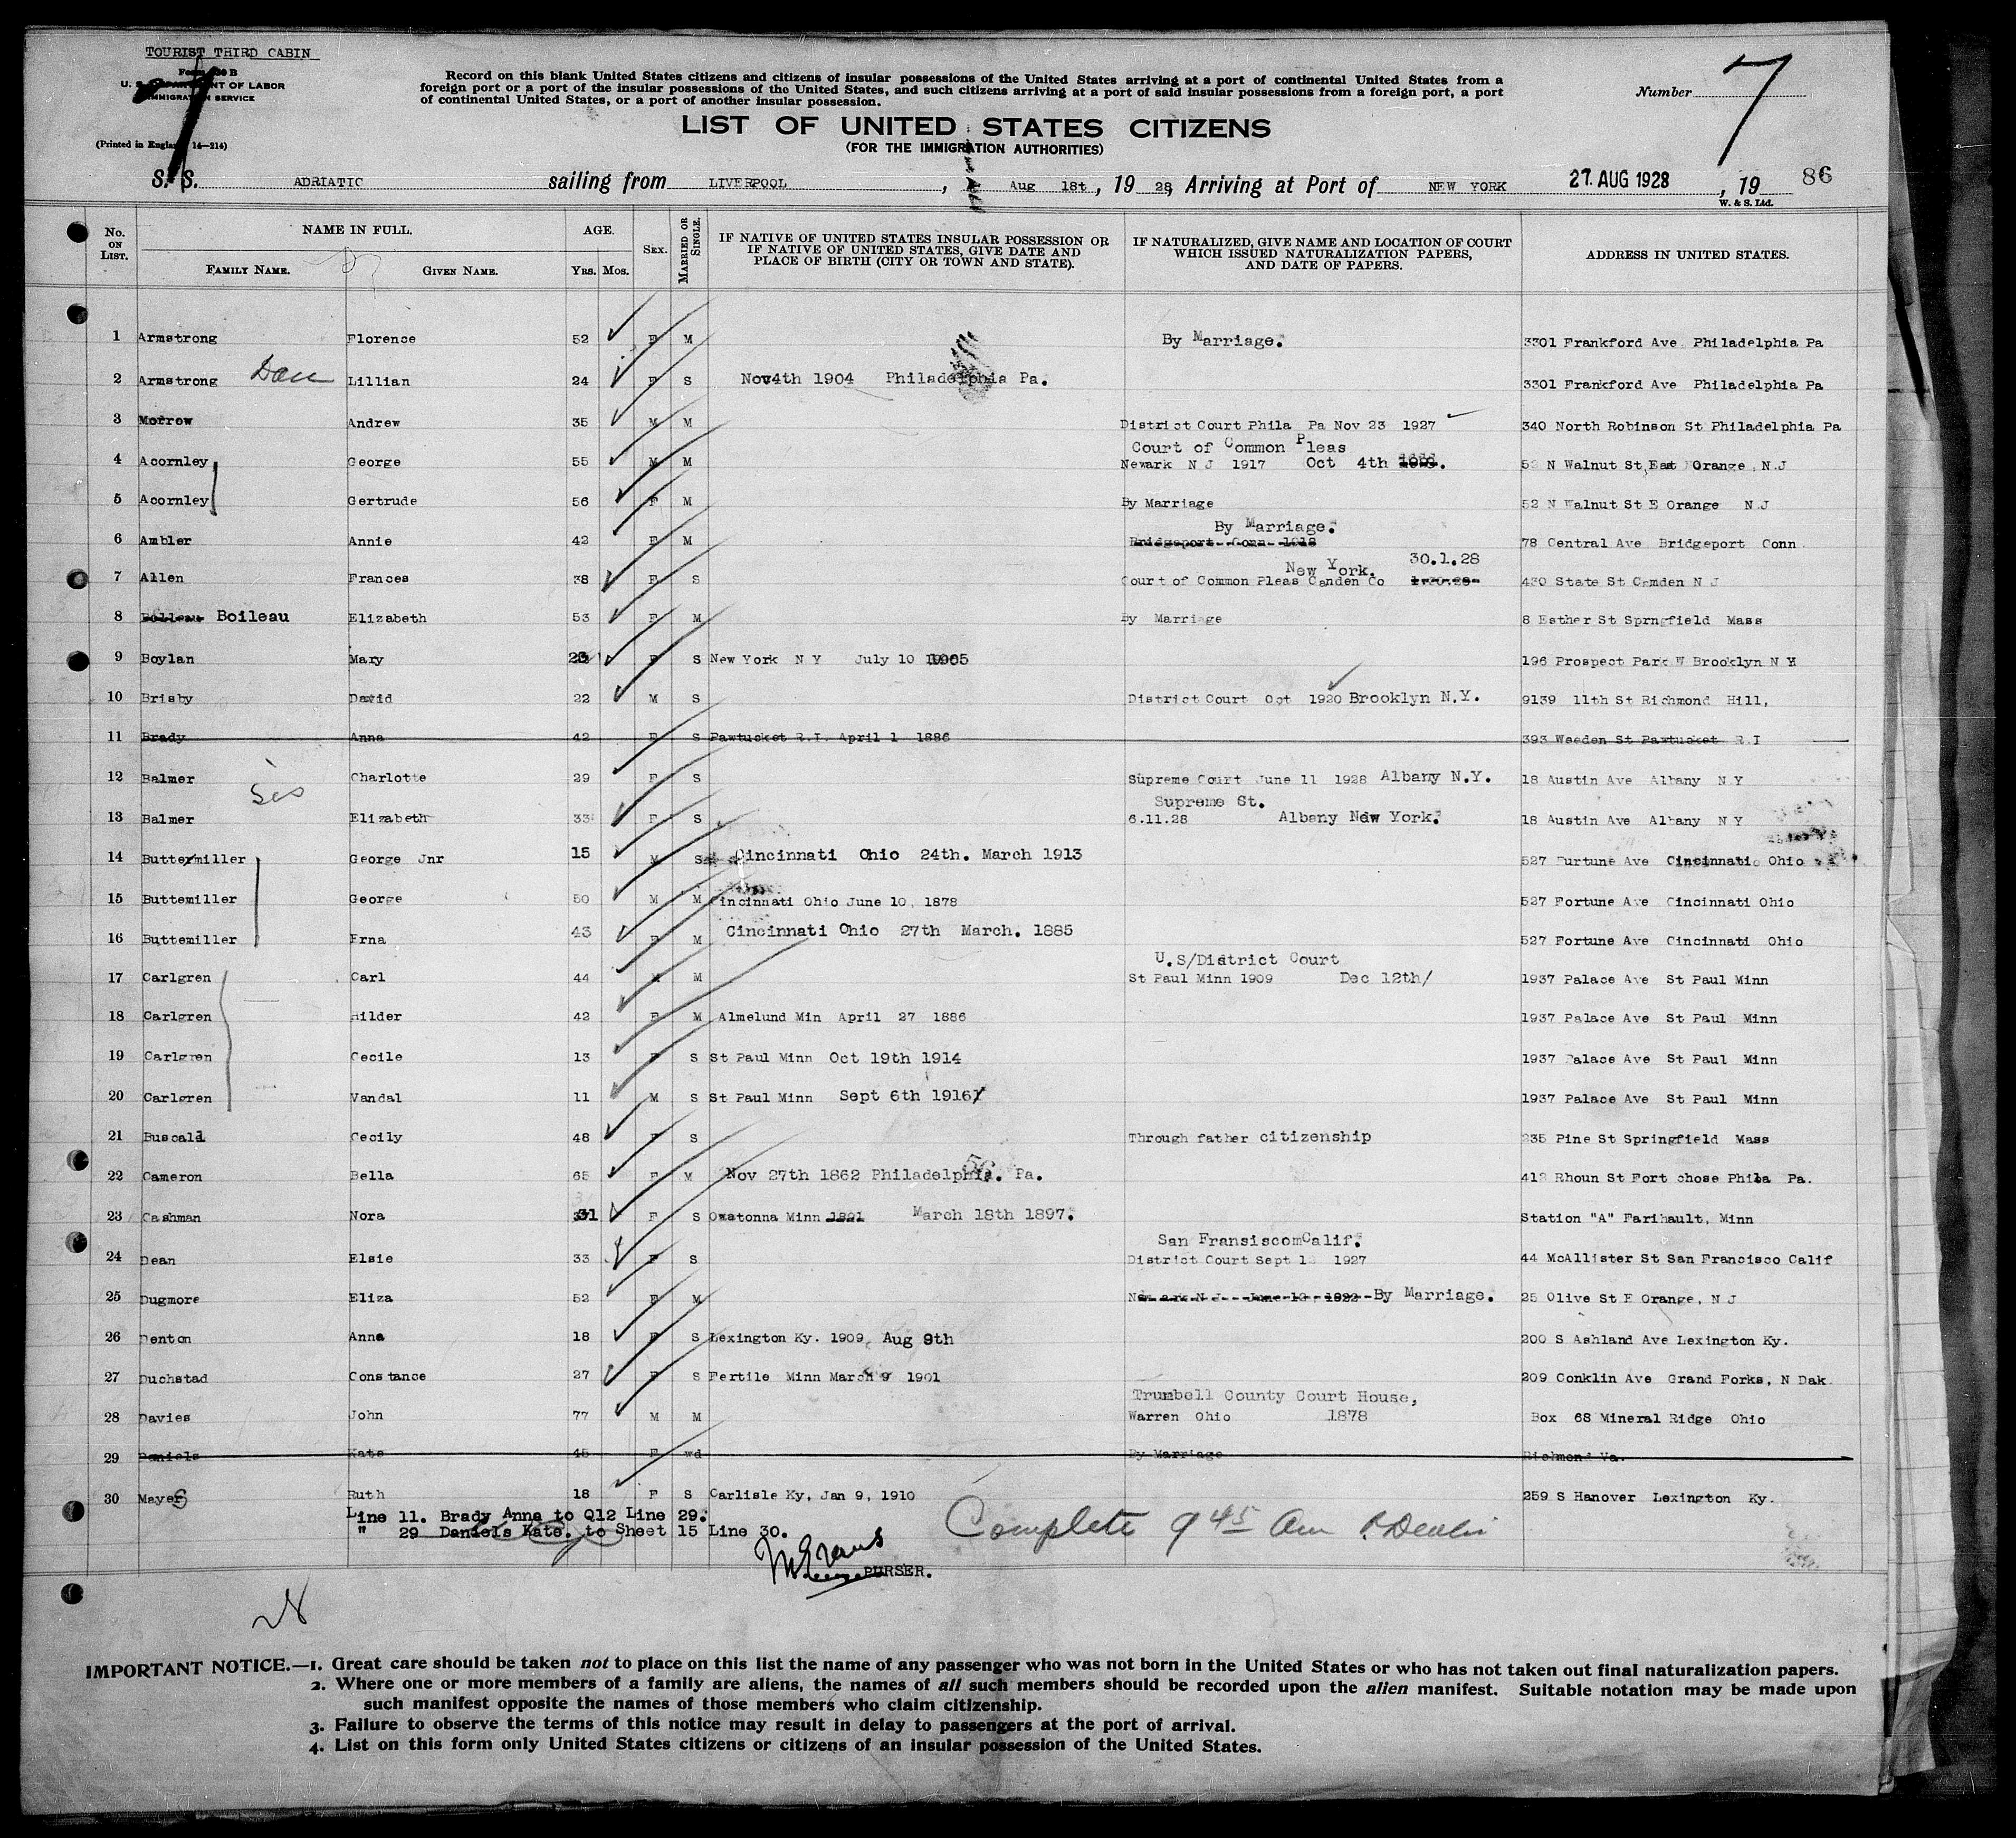 TOURIST THIRD CABIN
Form 630 B
U. S. DEPARTMENT OF LABOR
IMMIGRATION SERVICE
(Printed in England 14—214)
Record on this blank United States citizens and citizens of insular possessions of the United States arriving at a port of continental United States from a
foreign port or a port of the insular possessions of the United States, and such citizens arriving at a port of said insular possessions from a foreign port, a port
of continental United States, or a port of another insular possession.
Number 7
LIST OF UNITED STATES CITIZENS
(FOR THE IMMIGRATION AUTHORITIES)
S. S. ADRIATIC sailing from LIVERPOOL, Aug 18t, 19 28, Arriving at Port of NEW YORK 27 AUG 1928, 19 86
W. & S. Ltd.
No. ON LIST. NAME IN FULL. FAMILY NAME. GIVEN NAME. AGE. YRS. MOS. SEX. MARRIED OR SINGLE. IF NATIVE OF UNITED STATES INSULAR POSSESSION OR IF NATIVE OF UNITED STATES, GIVE DATE AND PLACE OF BIRTH (CITY OR TOWN AND STATE). IF NATURALIZED, GIVE NAME AND LOCATION OF COURT WHICH ISSUED NATURALIZATION PAPERS, AND DATE OF PAPERS. ADDRESS IN UNITED STATES.
1 Armstrong Florence 52 F M By Marriage. 3301 Frankford Ave Philadelphia Pa
2 Armstrong Dau Lillian 24 F S Nov4th 1904 Philadelphia Pa. 3301 Frankford Ave Philadelphia Pa
3 Morrow Andrew 35 M M District Court Phila Pa Nov 23 1927 340 North Robinson St Philadelphia Pa
Court of Common Pleas
4 Acornley George 55 M M Newark N J 1917 Oct 4th 52 N Walnut St East Orange N.J
5 Acornley Gertrude 56 F M By Marriage 52 N Walnut St E Orange N.J
By Marriage.
6 Ambler Annie 42 F M Bridgeport Conn 1918 78 Central Ave Bridgeport Conn
New York. 30.1.28
7 Allen Frances 38 F S Court of Common Pleas Camden Co 1.30.28 430 State St Camden N J
8 Boileau Elizabeth 53 F M By Marriage 8 Esther St Sprngfield Mass
9 Boylan Mary 23 F S New York N Y July 10 1905 196 Prospect Park W Brooklyn N Y
10 Brisby David 22 M S District Court Oct 1920 Brooklyn N.Y. 9139 11th St Richmond Hill,
11 Brady Anna 42 F S Pawtucket R.I. April 1 1886 393 Weeden St Pawtucket R.I
12 Balmer Charlotte 29 F S Supreme Court June 11 1928 Albany N.Y. 18 Austin Ave Albany N Y
Sis
Supreme St.
13 Balmer Elizabeth 33 F S 6.11.28 Albany New York. 18 Austin Ave Albany N Y
14 Buttemiller George Jnr 15 M S Cincinnati Ohio 24th. March 1913 527 Furtune Ave Cincinnati Ohio
15 Buttemiller George 50 M M Cincinnati Ohio June 10, 1878 527 Fortune Ave Cincinnati Ohio
16 Buttemiller Erna 43 F M Cincinnati Ohio 27th March. 1885 527 Fortune Ave Cincinnati Ohio
U.S/District Court
17 Carlgren Carl 44 M M St Paul Minn 1909 Dec 12th/ 1937 Palace Ave St Paul Minn
18 Carlgren Hilder 42 F M Almelund Min April 27 1886 1937 Palace Ave St Paul Minn
19 Carlgren Cecile 13 F S St Paul Minn Oct 19th 1914 1937 Palace Ave St Paul Minn
20 Carlgren Vandal 11 M S St Paul Minn Sept 6th 1916 1937 Palace Ave St Paul Minn
21 Buscall Cecily 48 F S Through father citizenship 235 Pine St Springfield Mass
22 Cameron Bella 65 F M Nov 27th 1862 Philadelphia. Pa. 412 Rhoun St Fort chose Phila Pa.
23 Cashman Nora 31 F S Owatonna Minn 1891 March 18th 1897. Station "A" Farihault, Minn
San FransiscomCalif.
24 Dean Elsie 33 F S District Court Sept 12 1927 44 McAllister St San Francisco Calif
25 Dugmore Eliza 52 F M Newark N J June 10 1922 By Marriage. 25 Olive St E Orange, N J
26 Denton Anna 18 F S Lexington Ky. 1909 Aug 9th 200 S Ashland Ave Lexington Ky.
27 Duchstad Constance 27 F S Fertile Minn March 9 1901 209 Conklin Ave Grand Forks, N Dak
Trumbell County Court House,
28 Davies John 77 M M Warren Ohio 1878 Box 68 Mineral Ridge Ohio
29 Daniels Kate 45 F wd By Marriage Richmond Va.
30 Mayes Ruth 18 F S Carlisle Ky, Jan 9, 1910 259 S Hanover Lexington Ky.
Line 11. Brady Anna to Q12 Line 29.
" 29 Daniels Kate. to Sheet 15 Line 30.
Complete 9 45 Am
PURSER.
28
IMPORTANT NOTICE.—1. Great care should be taken not to place on this list the name of any passenger who was not born in the United States or who has not taken out final naturalization papers.
2. Where one or more members of a family are aliens, the names of all such members should be recorded upon the alien manifest. Suitable notation may be made upon
such manifest opposite the names of those members who claim citizenship.
3. Failure to observe the terms of this notice may result in delay to passengers at the port of arrival.
4. List on this form only United States citizens or citizens of an insular possession of the United States.